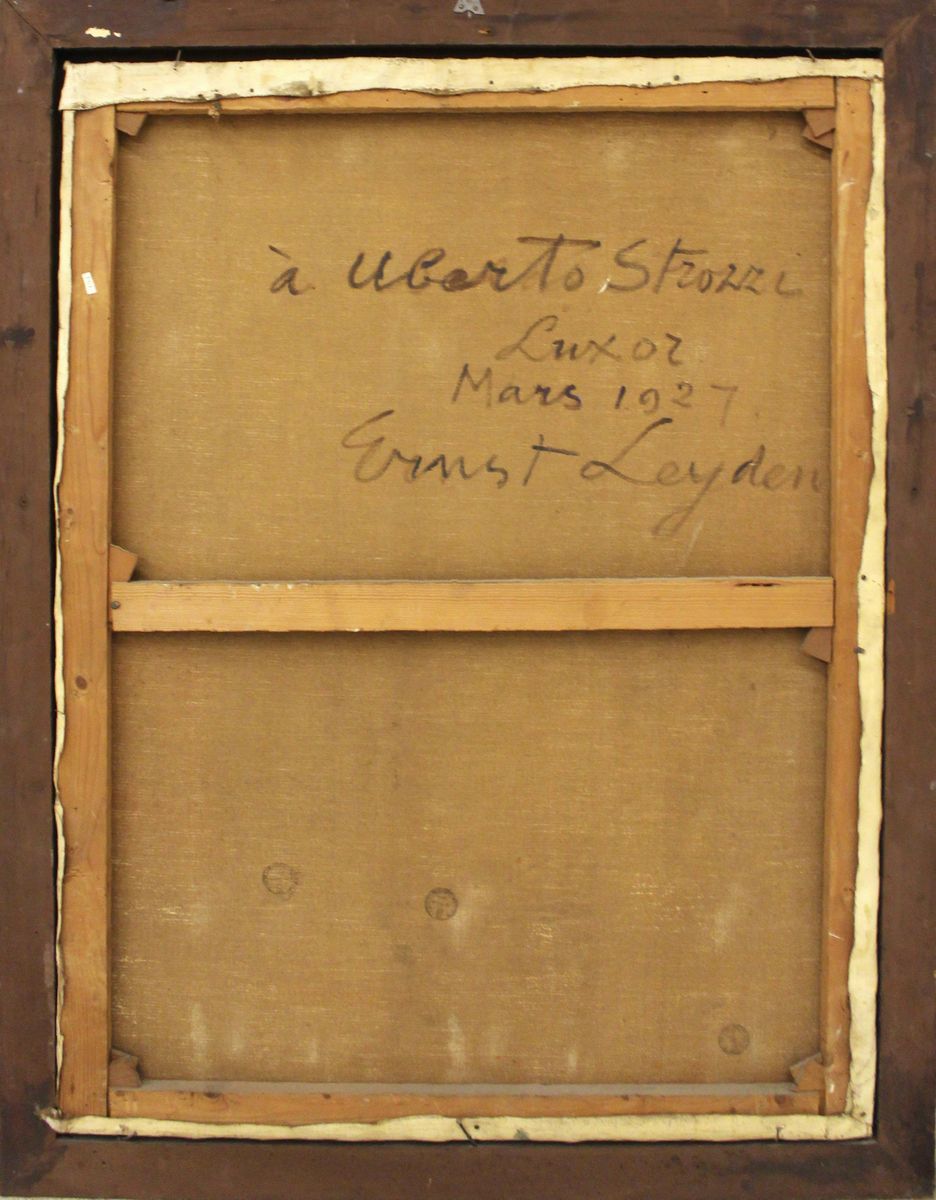 à Uberto Strozzi
Luxor
Mars 1927.
Ernst Leyden